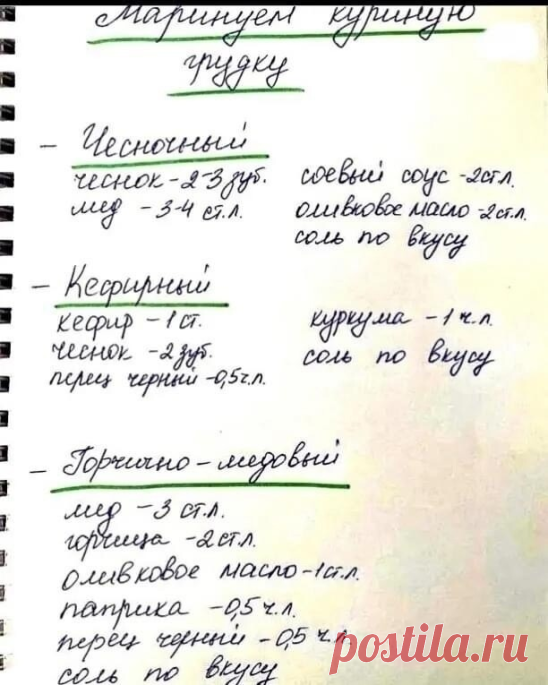 Маринуем куриную
грудку
- Чесночный
чеснок - 2-3 зуб.
мед - 3-4 ст.л.
соевый соус - 2ст.л.
оливковое масло - 2ст.л.
соль по вкусу
- Кефирный
кефир - 1 ст.
чеснок - 2 зуб.
перец черный - 0,5 ч.л.
куркума - 1 ч.л.
соль по вкусу
- Горчично-медовый
мед - 3 ст.л.
горчица - 2ст.л.
оливковое масло - 1ст.л.
паприка - 0,5 ч.л.
перец черный - 0,5 ч.л.
соль по вкусу
postila.ru